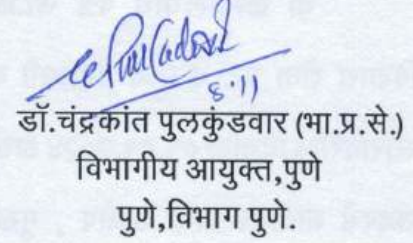 ६.११
डॉ.चंद्रकांत पुलकुंडवार (भा.प्र.से.)
विभागीय आयुक्त,पुणे
पुणे,विभाग पुणे.